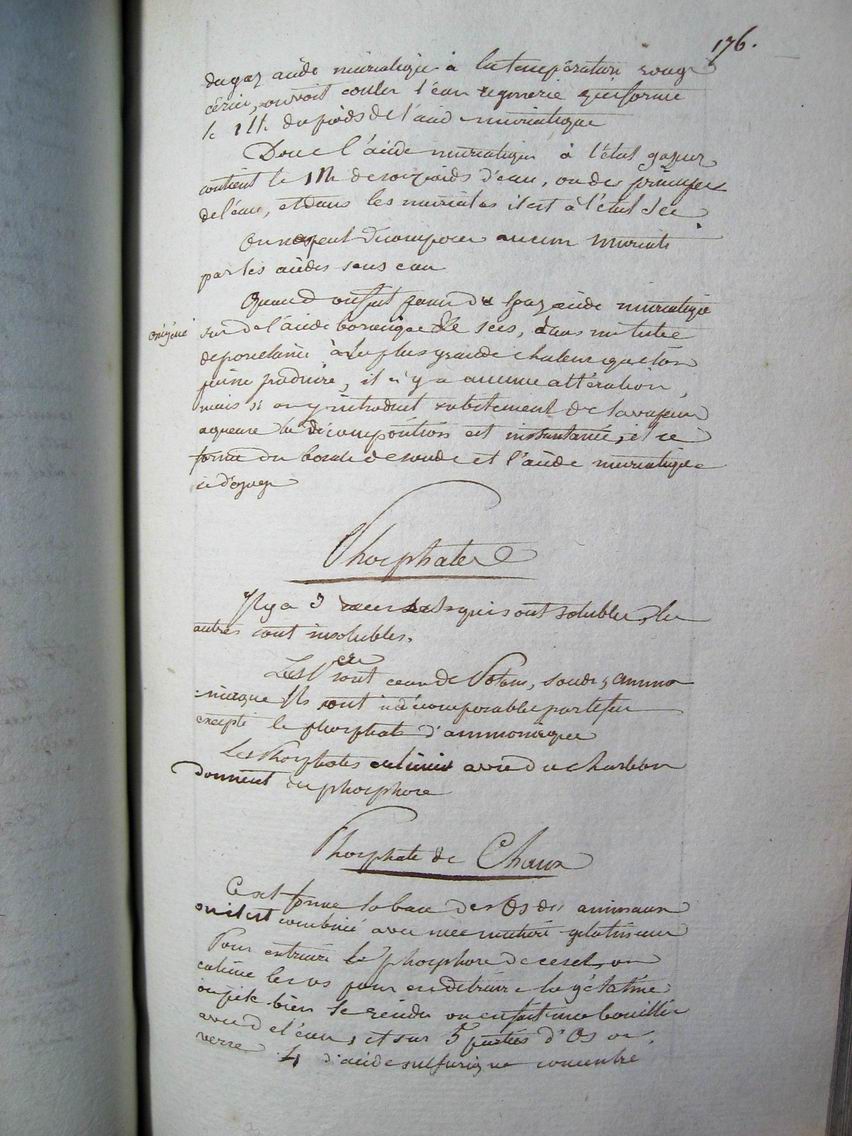 176.
du gaz acide muriatique à la température rouge
cérise, on voit couler l'eau qui forme
le 1/4 du poids de l'acide muriatique
Donc l'acide muriatique à l'état gazeux
contient le 1/4 de son poids d'eau, ou des principes
de l'eau, et dans les muriates il est à l'état sec
On ne peut décomposer aucun muriate
par les acides sans eau
Quand on fait passer du gaz acide muriatique
sur de l'acide boracique secs, dans un tube
de porcelaine à la plus grande chaleur que l'on
puisse produire, il n'y a aucune altération,
mais si on y introduit subitement de la vapeur
aqueuse la décomposition est instantanée, il se
forme du borate de soude et l'acide muriatique
se dégage
Phosphates
Il y a 3 sels qui sont solubles, les
autres sont insolubles.
Les 1ers sont ceux de Potasse, soude, ammo
niaque Ils sont indécomposable par le feu
excepté le phosphate d'ammoniaque
Les Phosphates calcinés avec du charbon
donnent du phosphore
Phosphate de Chaux
Ce sel forme la base des Os des animaux
où il est combiné avec une matière gelatineuse
Pour extraire le phosphore de ce sel, on
calcine les os pour en détruire la gélatine
ou bien en faisant bouillir
avec de l'eau, et sur 5 parties d'Os on
verse 4 d'acide sulfurique concentré